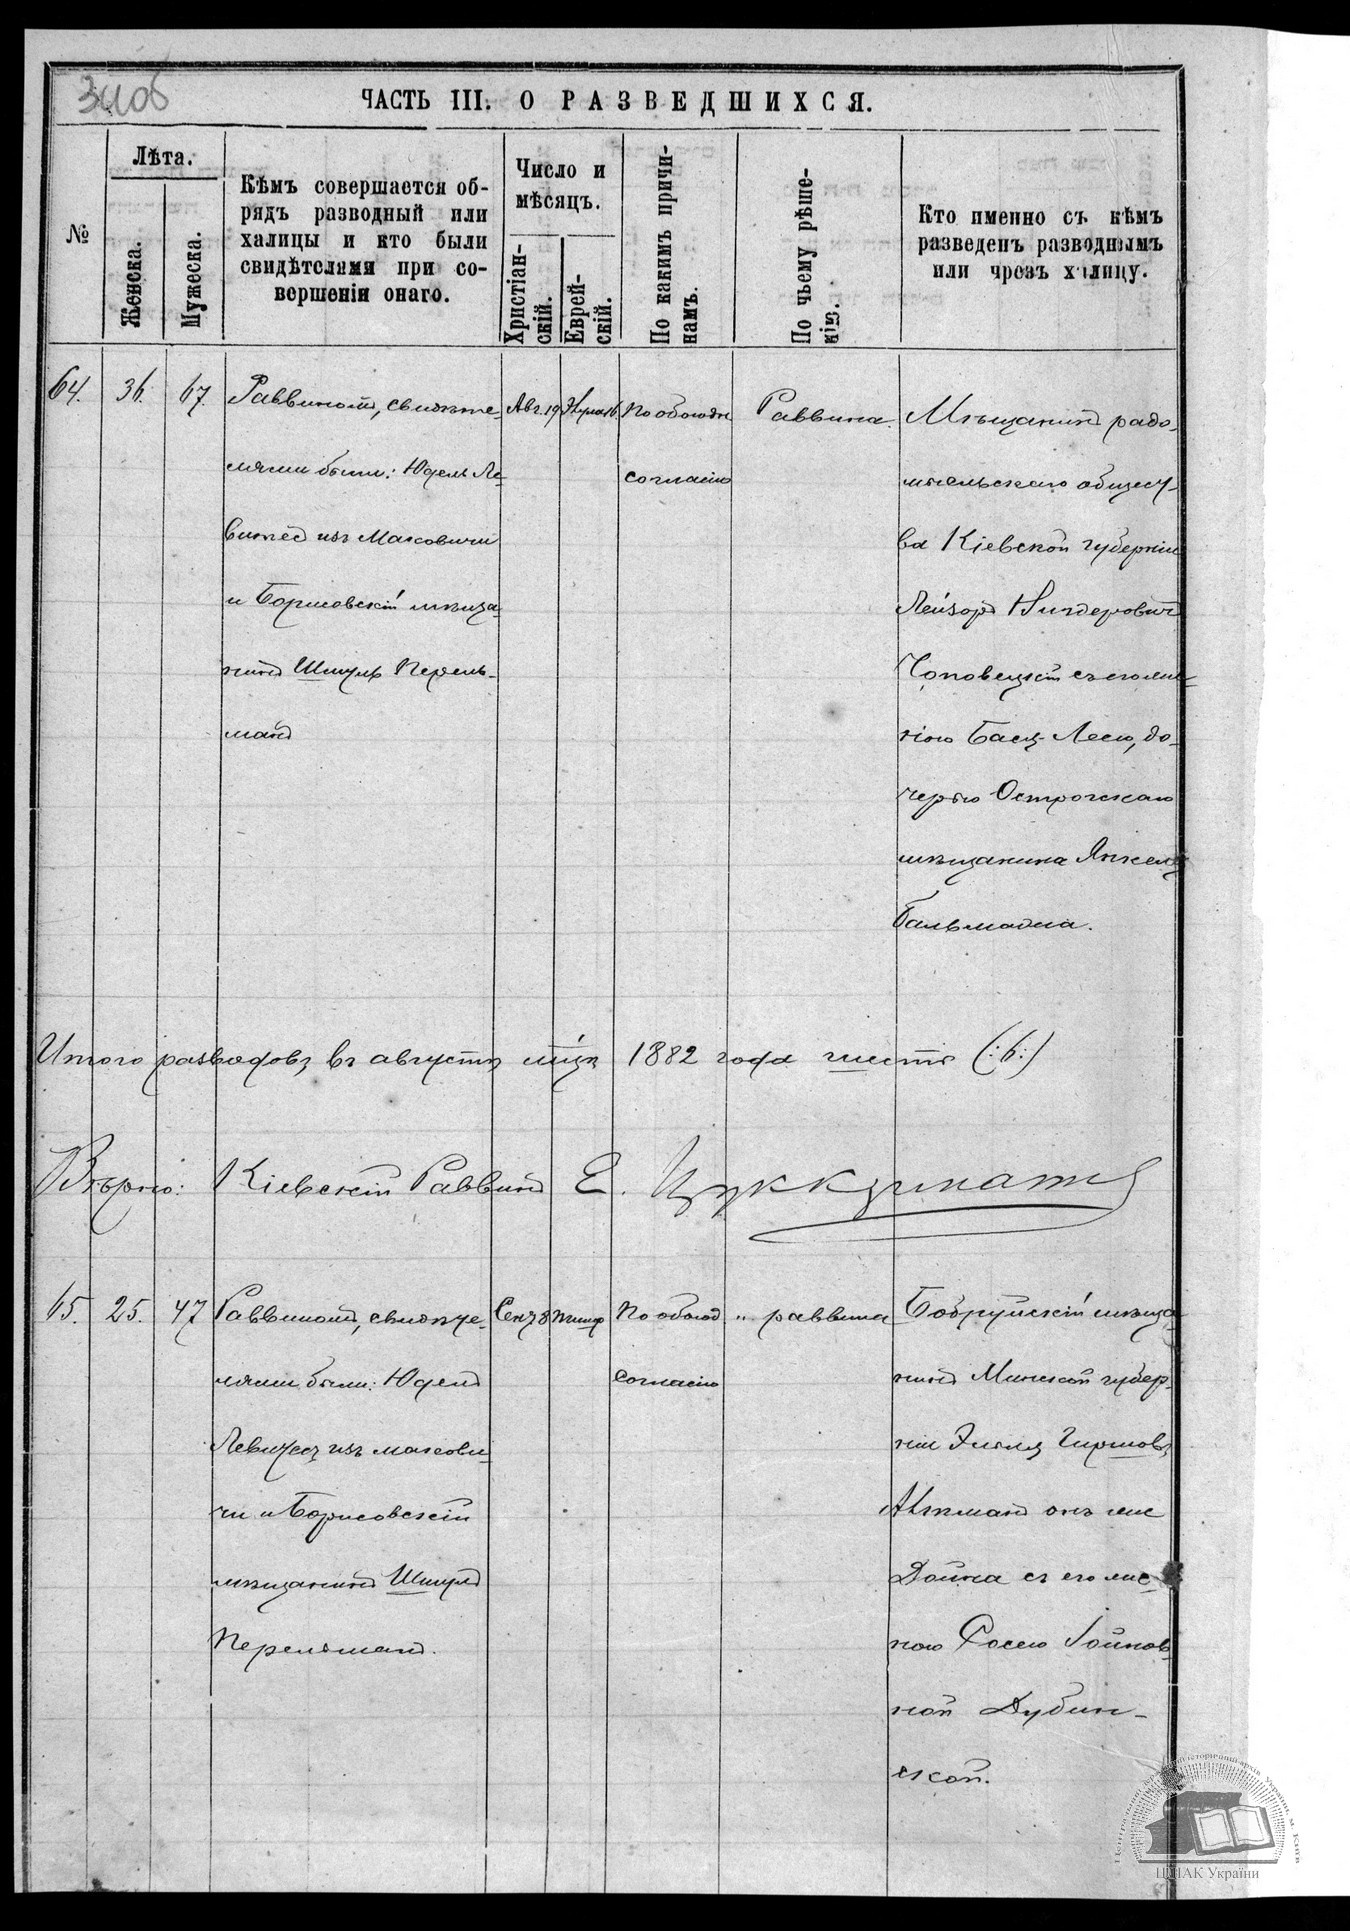 ЧАСТЬ III. О РАЗВЕДШИХСЯ.
№
Лѣта.
Женска.
Мужеска.
Кѣмъ совершается об-
рядъ разводный или
халицы и кто были
свидѣтелями при со-
вершеніи онаго.
Число и
мѣсяцъ.
Христіан-
скій.
Еврей-
скій.
По какимъ причи-
намъ.
По чьему рѣше-
нію.
Кто именно съ кѣмъ
разведенъ разводнымъ
или чрезъ халицу.
64. 36. 67. Раввиномъ, свидѣте-
лями были: Юдель Ле-
витес изъ Маковичи
и Борисовскій мѣща-
нинъ Шмуль Перель-
манъ
Авг. 19
По обоюдн
согласію
Раввина.
Мѣщанинъ радо-
мысльскаго общест-
ва Кіевской губерніи
Лейзоръ
Чоповецкій съ его же-
ною Басц-Леею, до-
черью Острогскаго
мѣщанина Янкеля
Бальмана.
Итого разводовъ въ августѣ мѣц 1882 года шесть (:6:)
Вѣрно: Кіевскій Раввинъ Е. Цуккерманъ
65. 25. 47 Раввиномъ, свидѣте-
лями были: Юдель
Левитес изъ макови-
чи и Борисовскій
мѣщанинъ Шмуль
Перельманъ.
Сент 8
По обоюд
согласію
" раввина
Бобруйскій мѣща-
нинъ Минской губер-
ніи Гиршовъ
онъ же
Дойна съ его же-
ною Фосею
ной Дубин-
ской.
ЦДІАК України